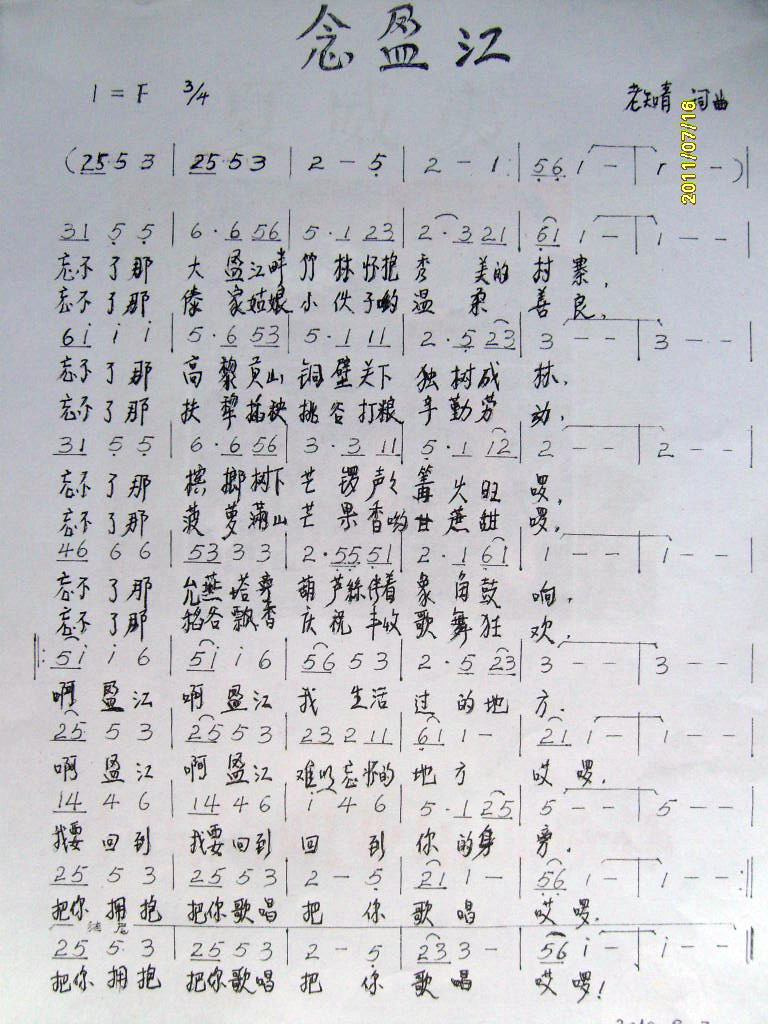 念盈江
1 = F 3/4 老知青 词曲
2011/07/16
(25·5 3 | 25·5 3 | 2 - 5 | 2 - 1 | 56 1 - | 1 - -)|
31 5 5 | 6·6 56 | 5·1 23 | 2·3 21 | 61 1 - | 1 - -
忘不了那 大盈江畔 竹林怀抱 秀 美的 村寨,
忘不了那 傣家姑娘 小伙子哟 温柔 善良,
61 i i | 5·6 53 | 5·1 11 | 2·5 23 | 3 - - | 3 - -
忘不了那 高黎贡山 铜壁关下 独树成 林,
忘不了那 扶犁插秧 挑谷打粮 辛勤劳 动,
31 5 5 | 6·6 56 | 3·3 11 | 5·1 12 | 2 - - | 2 - -
忘不了那 槟榔树下 芒锣声声 篝火旺 啰,
忘不了那 菠萝满山 芒果香哟 甘蔗甜 啰,
46 6 6 | 53 3 3 | 2·55 51 | 2·1 61 | 1 - - | 1 - -
忘不了那 允燕塔旁 葫芦丝伴着 象角鼓 响,
忘不了那 稻谷飘香 庆祝丰收 歌舞狂 欢,
‖: 5i i 6 | 5i i 6 | 56 5 3 | 2·5 23 | 3 - - | 3 - -
啊 盈江 啊 盈江 我 生活 过 的地 方.
25 5 3 | 25 5 3 | 23 2 11 | 61 1 - | 21 1 - | 1 - -
啊 盈江 啊 盈江 难以忘怀的 地方 哎啰.
14 4 6 | 14 4 6 | i 4 6 | 5·1 25 | 5 - - | 5 - -
我要回到 我要回到 回 到 你 的身 旁.
25 5 3 | 25 5 3 | 2 - 5 | 21 1 - | 56 1 - | 1 - - :‖
把你拥抱 把你歌唱 把 你 歌唱 哎啰.
结尾
25 5·3 | 25 5 3 | 2 - 5 | 23 3 - | 56 i - | i - - ‖
把你拥抱 把你歌唱 把 你 歌唱 哎啰!